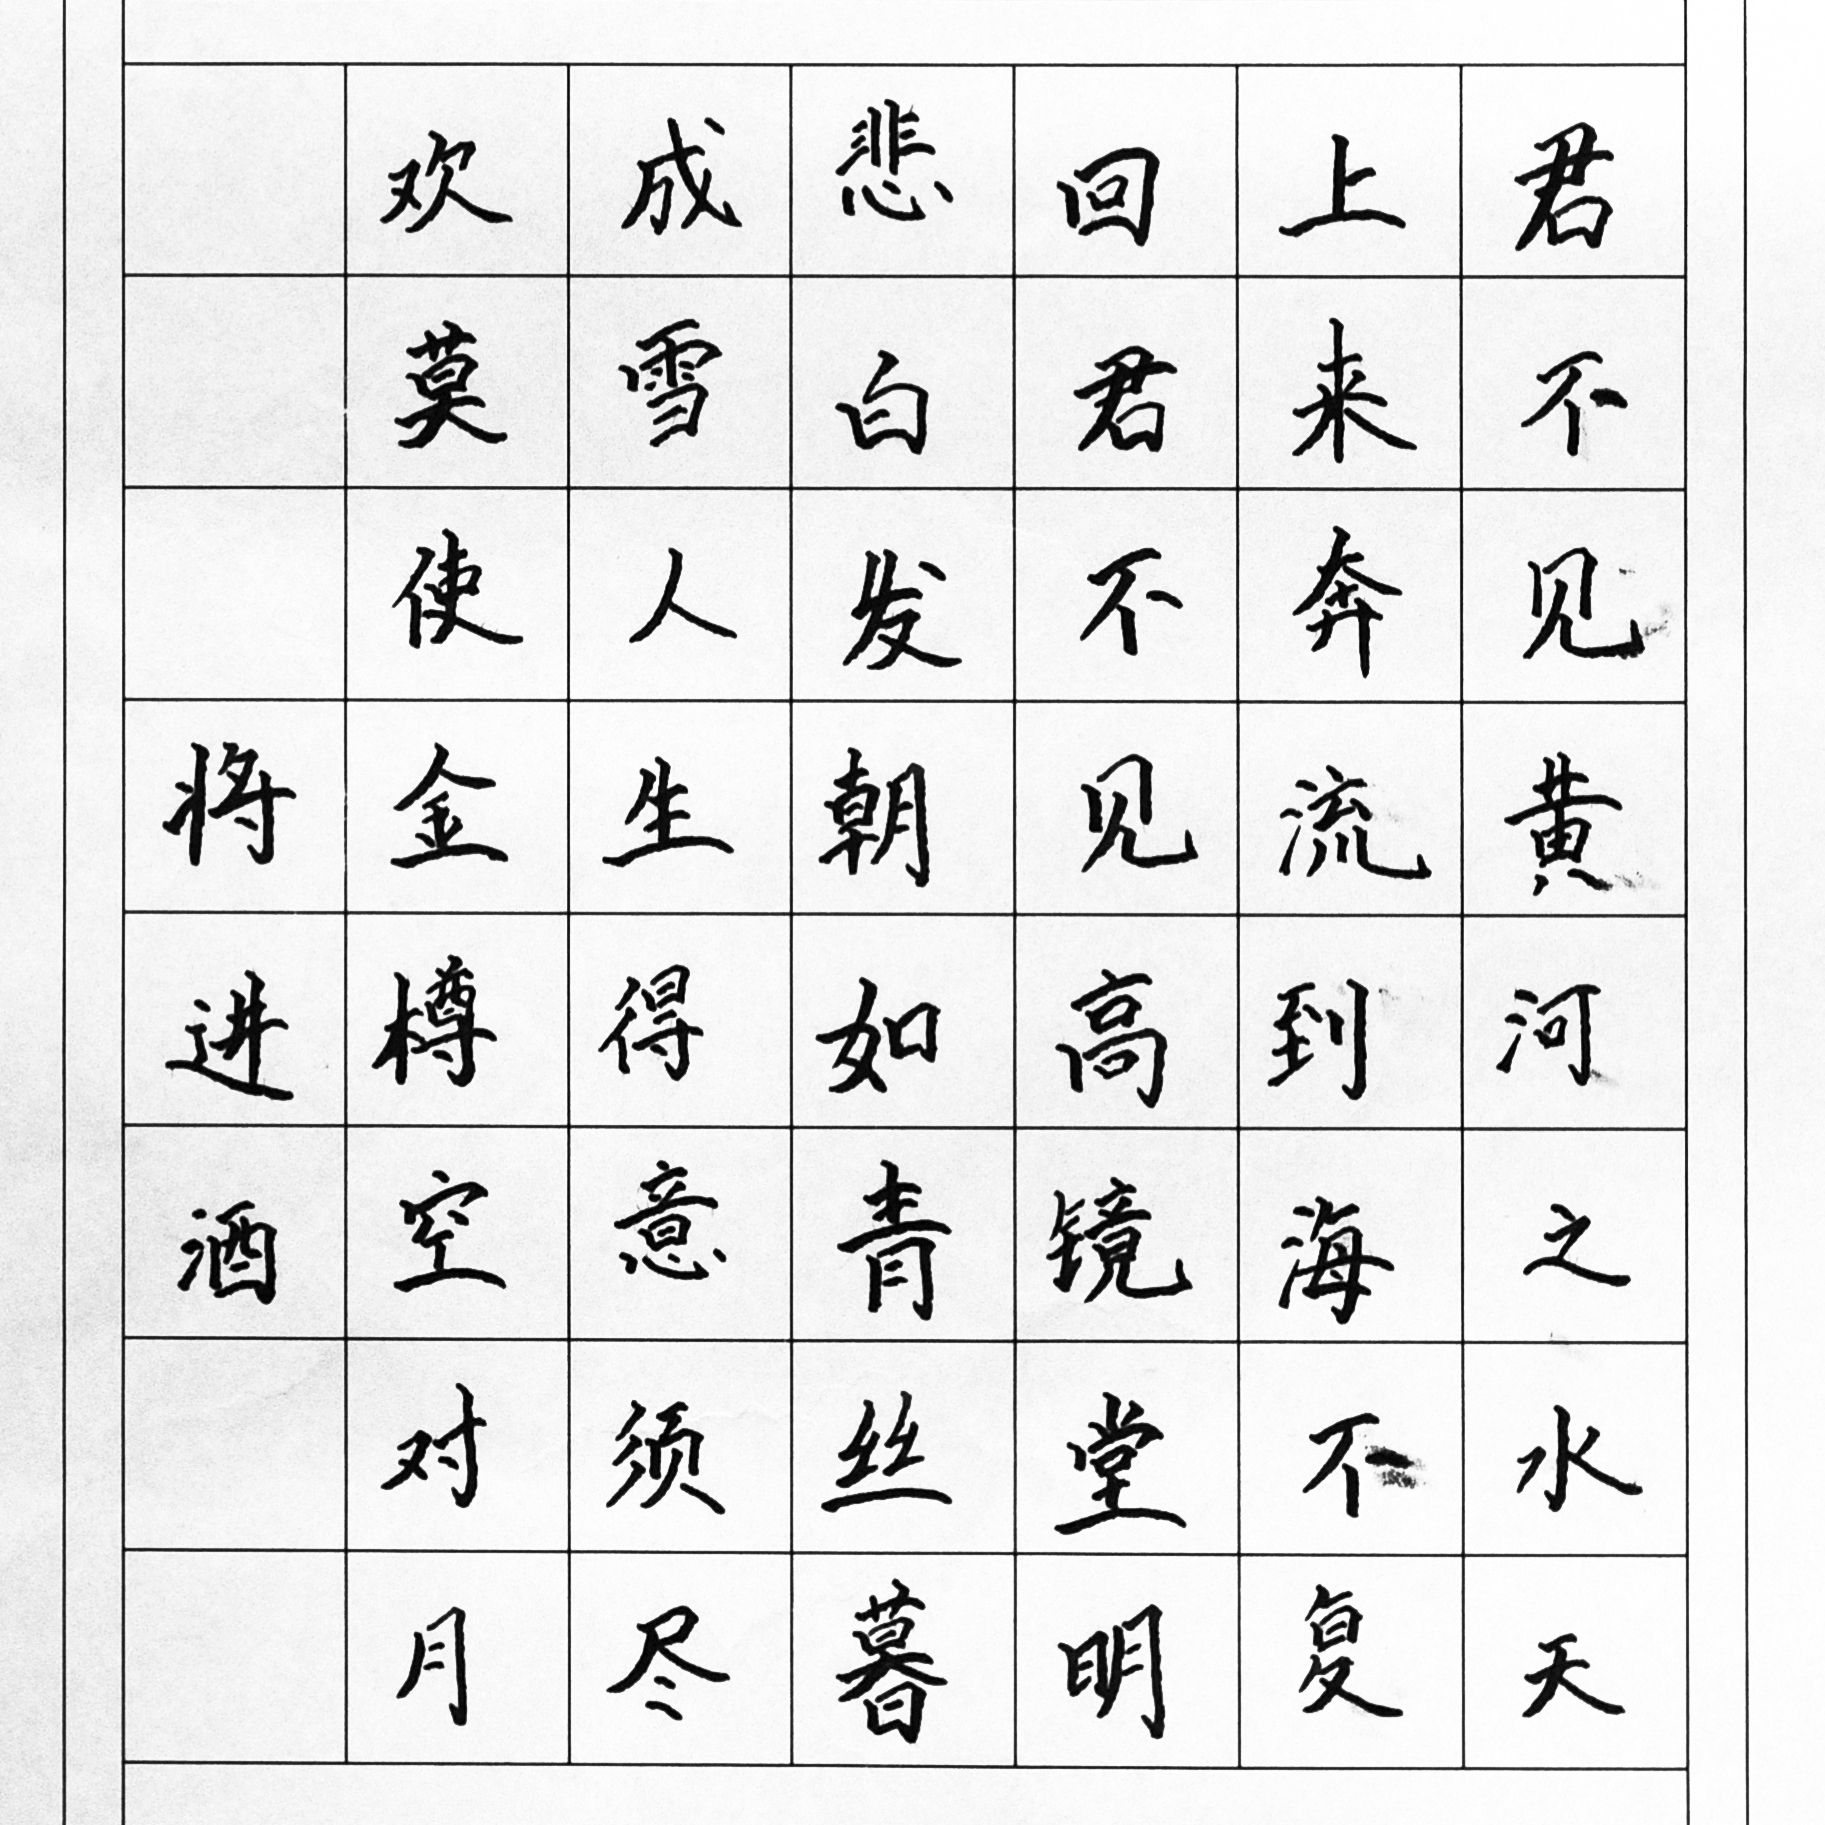 君不见黄河之水天
上来奔流到海不复
回君不见高镜堂明
悲白发朝如青丝暮
成雪人生得意须尽
欢莫使金樽空对月
将进酒